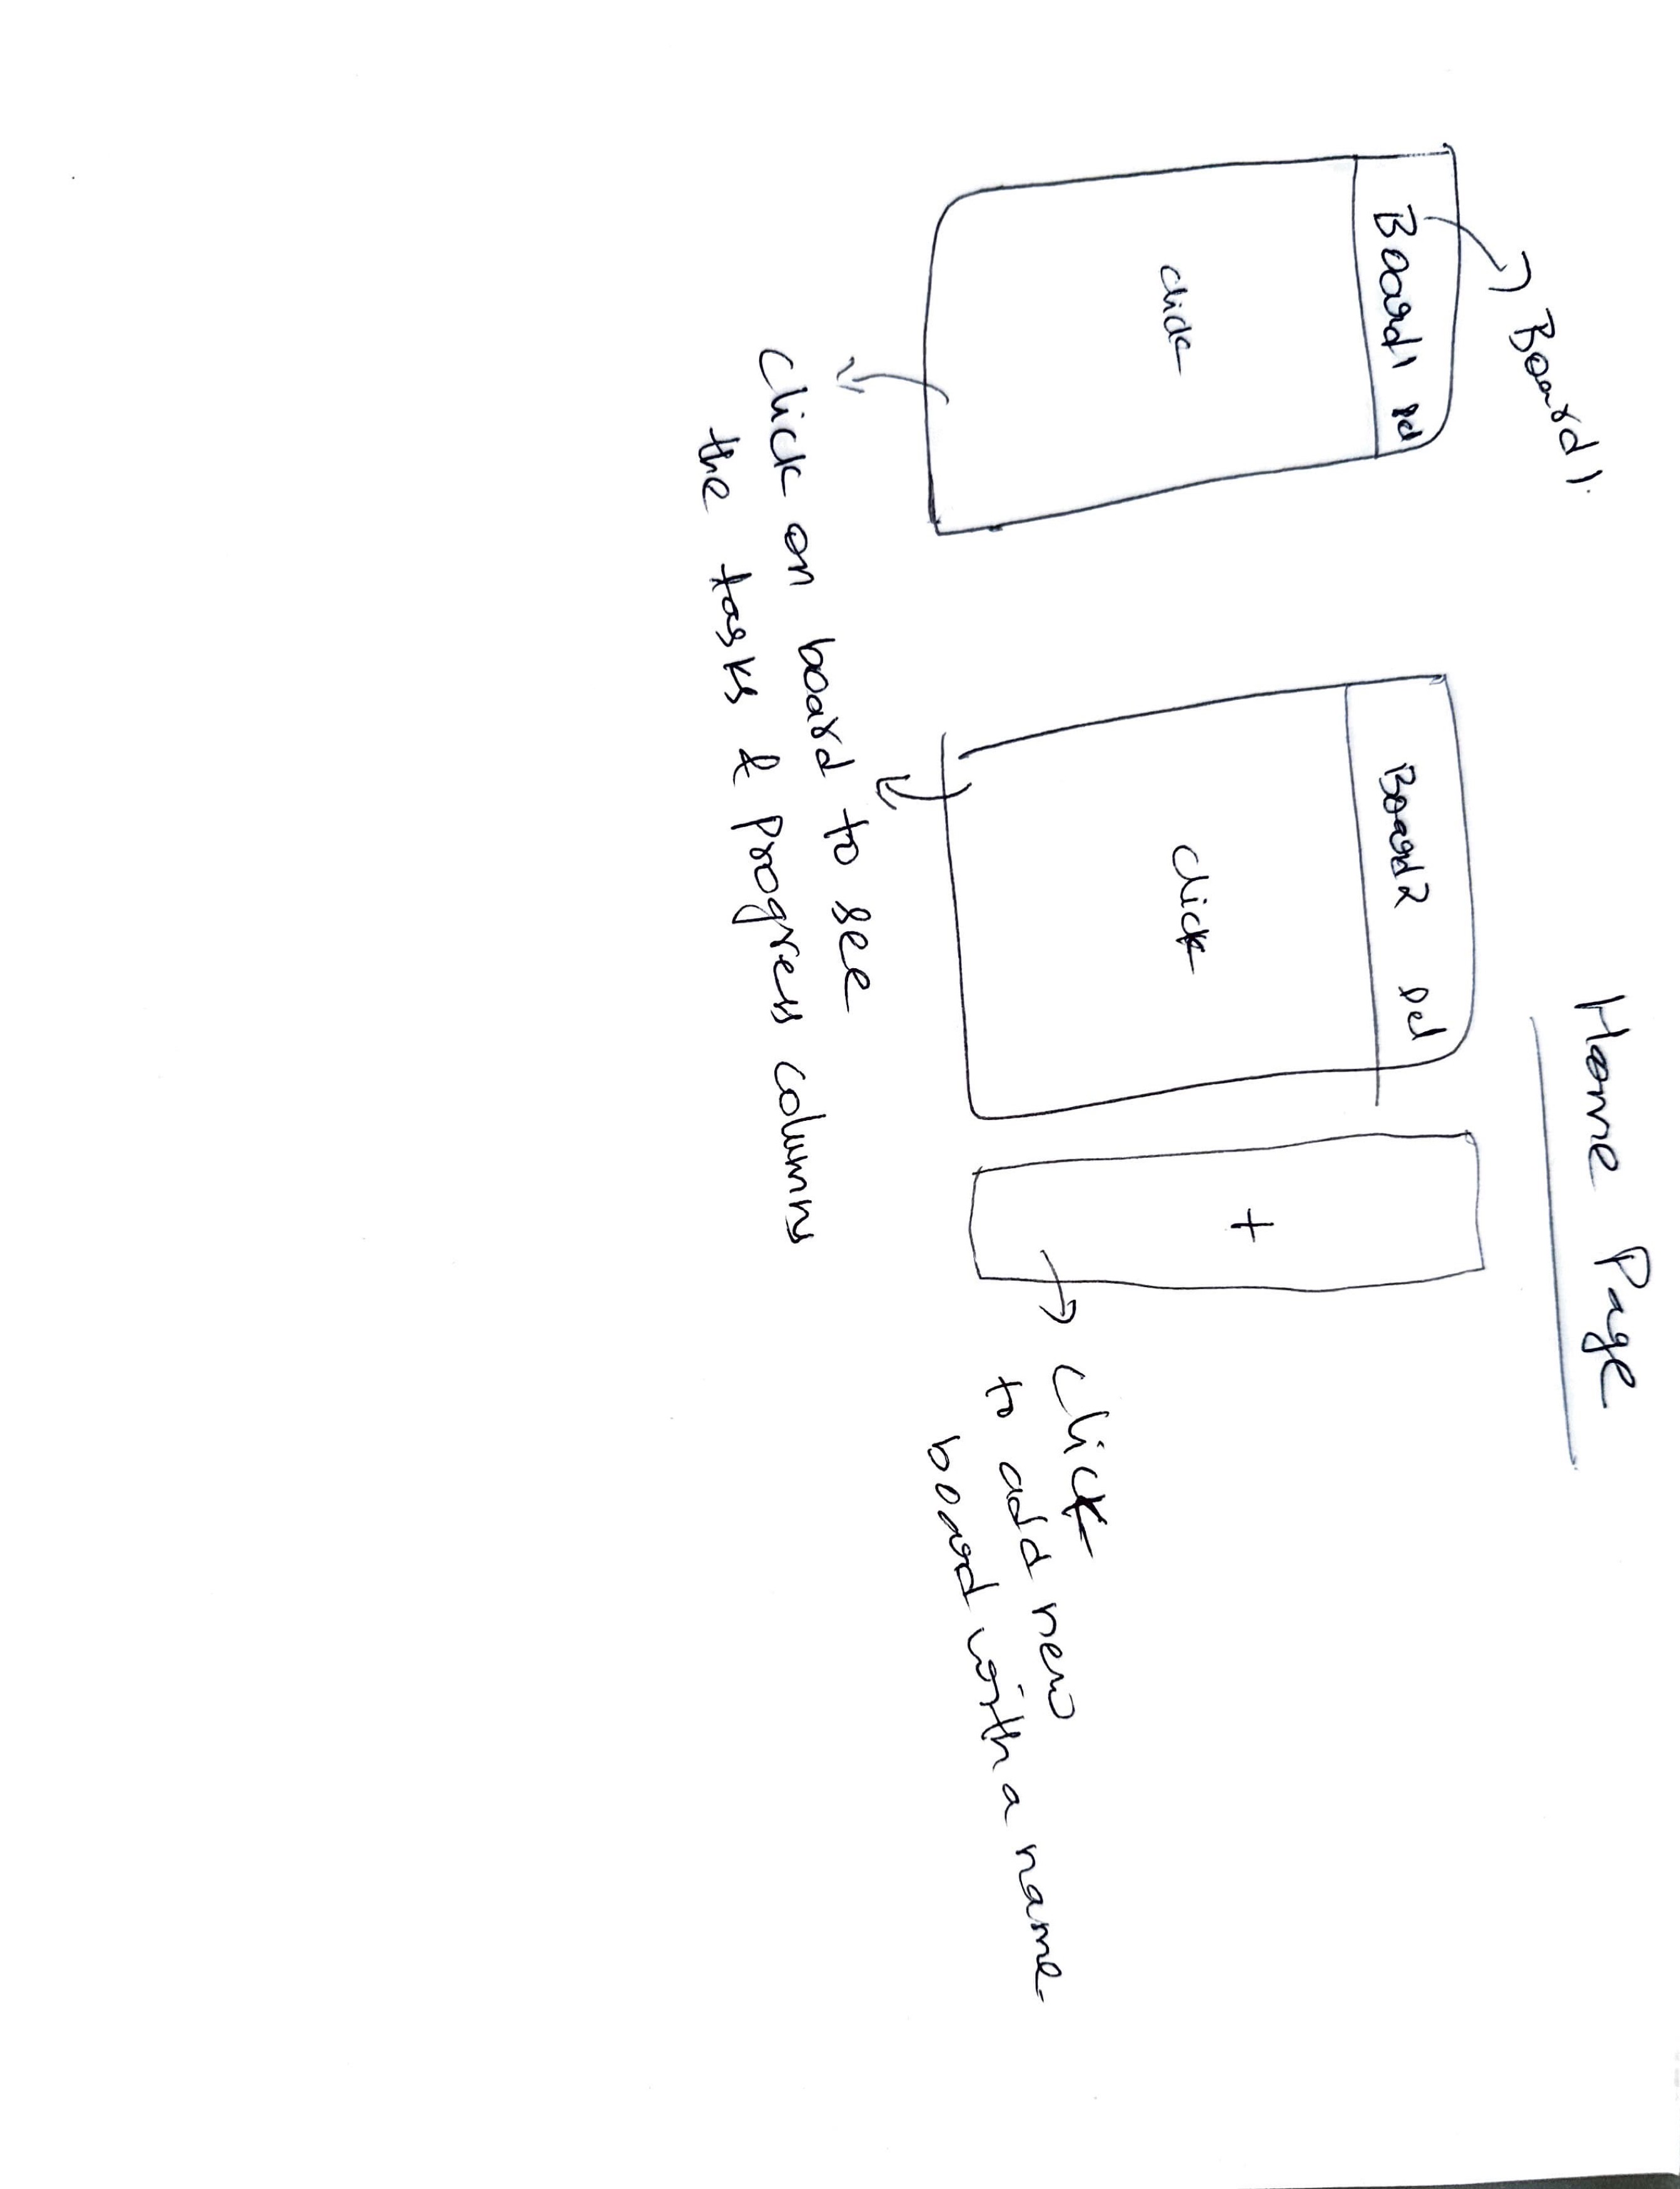 Home Page
Board 1.
Board 1 Del
Board 2 Del
click
click
+
click
to add new
board with a name
click on board to see
the tasks & progress columns